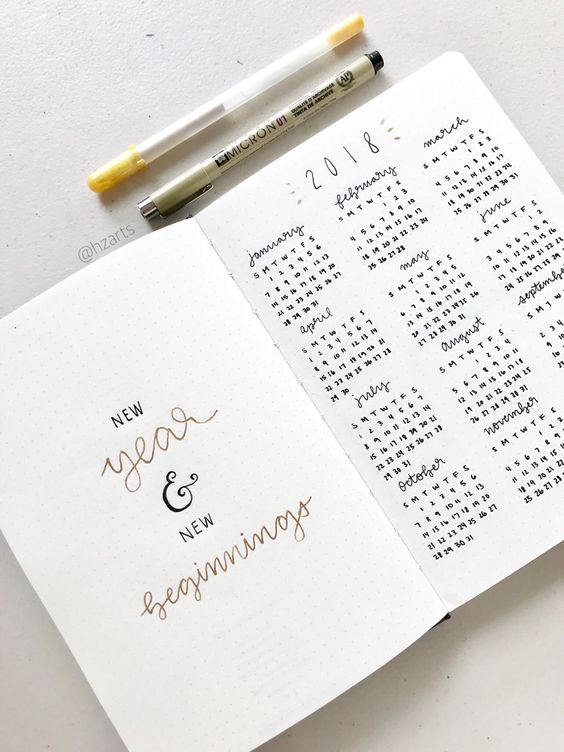 @hzarts
MICRON 01
QUALITÉ D'ARCHIVAGE
TINTA DE ARCHIVO
AP
NEW
year
&
NEW
beginnings
2018
january
S M T W T F S
1 2 3 4 5 6
7 8 9 10 11 12 13
14 15 16 17 18 19 20
21 22 23 24 25 26 27
28 29 30 31
february
S M T W T F S
1 2 3
4 5 6 7 8 9 10
11 12 13 14 15 16 17
18 19 20 21 22 23 24
25 26 27 28
march
S M T W T F S
1 2 3
4 5 6 7 8 9 10
11 12 13 14 15 16 17
18 19 20 21 22 23 24
25 26 27 28 29 30 31
april
S M T W T F S
1 2 3 4 5 6 7
8 9 10 11 12 13 14
15 16 17 18 19 20 21
22 23 24 25 26 27 28
29 30
may
S M T W T F S
1 2 3 4 5
6 7 8 9 10 11 12
13 14 15 16 17 18 19
20 21 22 23 24 25 26
27 28 29 30 31
june
S M T W T F S
1 2
3 4 5 6 7 8
10 11 12 13 14 15
17 18 19 20 21 22
24 25 26 27 28 29
july
S M T W T F S
1 2 3 4 5 6 7
8 9 10 11 12 13 14
15 16 17 18 19 20 21
22 23 24 25 26 27 28
29 30 31
august
S M T W T F S
1 2 3 4
5 6 7 8 9 10 11
12 13 14 15 16 17 18
19 20 21 22 23 24 25
26 27 28 29 30 31
september
S M T
2 3
9 10
16 17
23 24
30
october
S M T W T F S
1 2 3 4 5 6
7 8 9 10 11 12 13
14 15 16 17 18 19 20
21 22 23 24 25 26 27
28 29 30 31
november
S M T W T F S
1 2
4 5 6 7 8
11 12 13 14 15
18 19 20 21
25 26 27 28